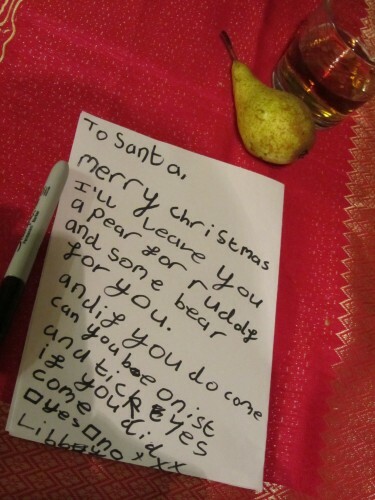 To Santa,
merry christmas
I'll leave you
a pear for ruddy
and some bear
for you.
and if you do come
can you be onist
and tick yes
if you did
come
□yes □no xxx